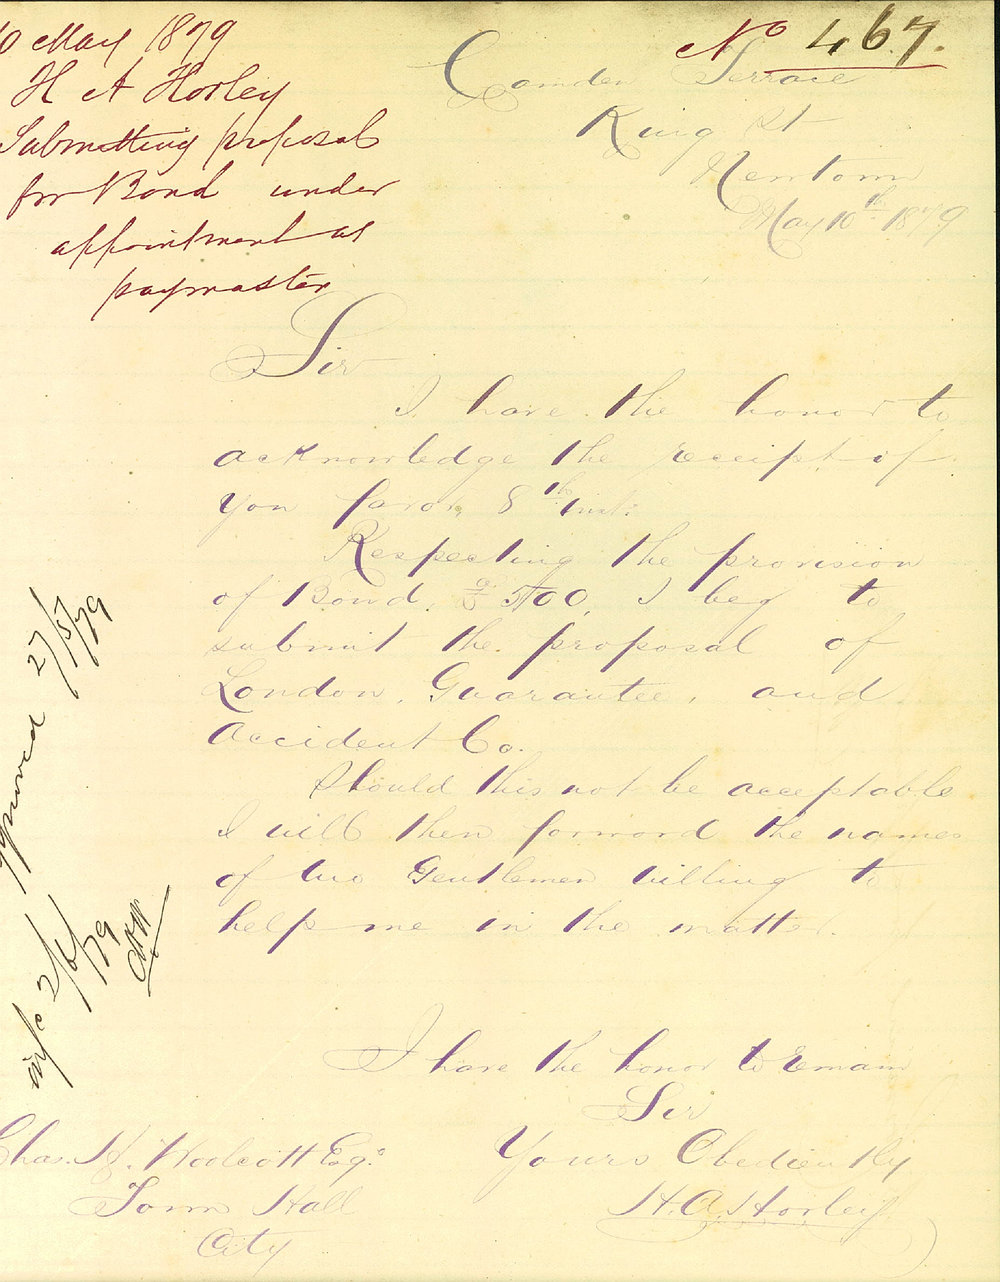 10 May 1879
H A Horley
Submitting proposal
for Bond under
appointment as
paymaster
No 467.
Camden Terrace
King St
Newtown
May 10th 1879
Sir
I have the honor to
acknowledge the receipt of
you favor, 8th inst:
Respecting the provision
of Bond, £500, I beg to
submit the proposal of
London, Guarantee, and
Accident Co.
Should this not be acceptable
I will then forward the names
of two Gentlemen willing to
help me in the matter.
I have the honor to remain
Sir
Yours Obediently
H. A. Horley
Chas. H. Woolcott Esq:
Town Hall
City
approved 27/5/79
2/6/79
CHW